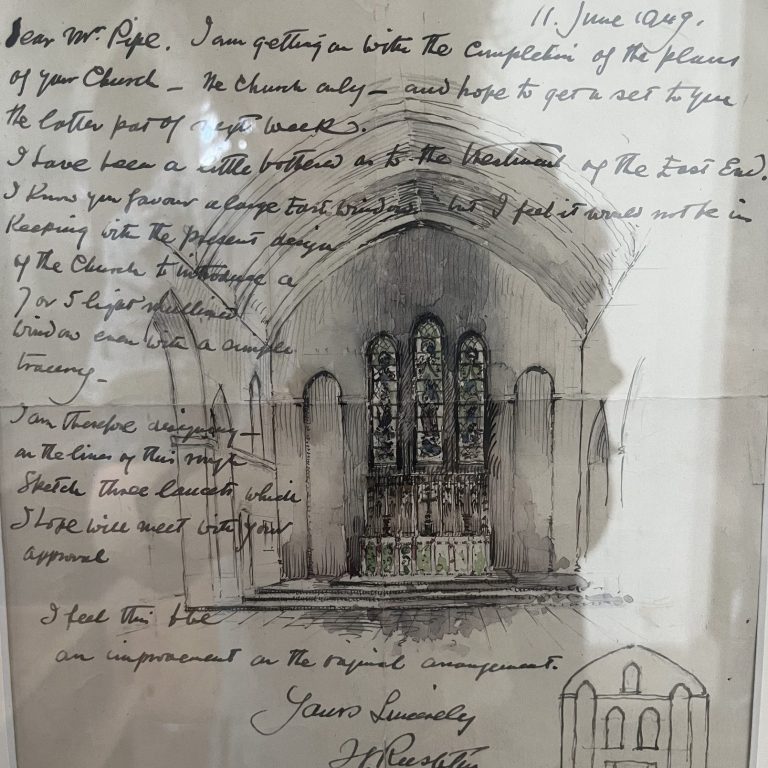 11. June 1949.
Dear Mr. Pipe. I am getting on with the completion of the plans
of your Church — the Church only — and hope to get a set to you
the latter part of next week.
I have been a little bothered as to the treatment of the East End.
I know you favour a large East window but I feel it would not be in
keeping with the present design
of the Church to introduce a
7 or 5 light mullioned
window even with a simple
tracery —
I am therefore designing —
on the lines of this rough
sketch three lancets which
I hope will meet with your
approval
I feel this
an improvement on the original arrangement.
Yours Sincerely